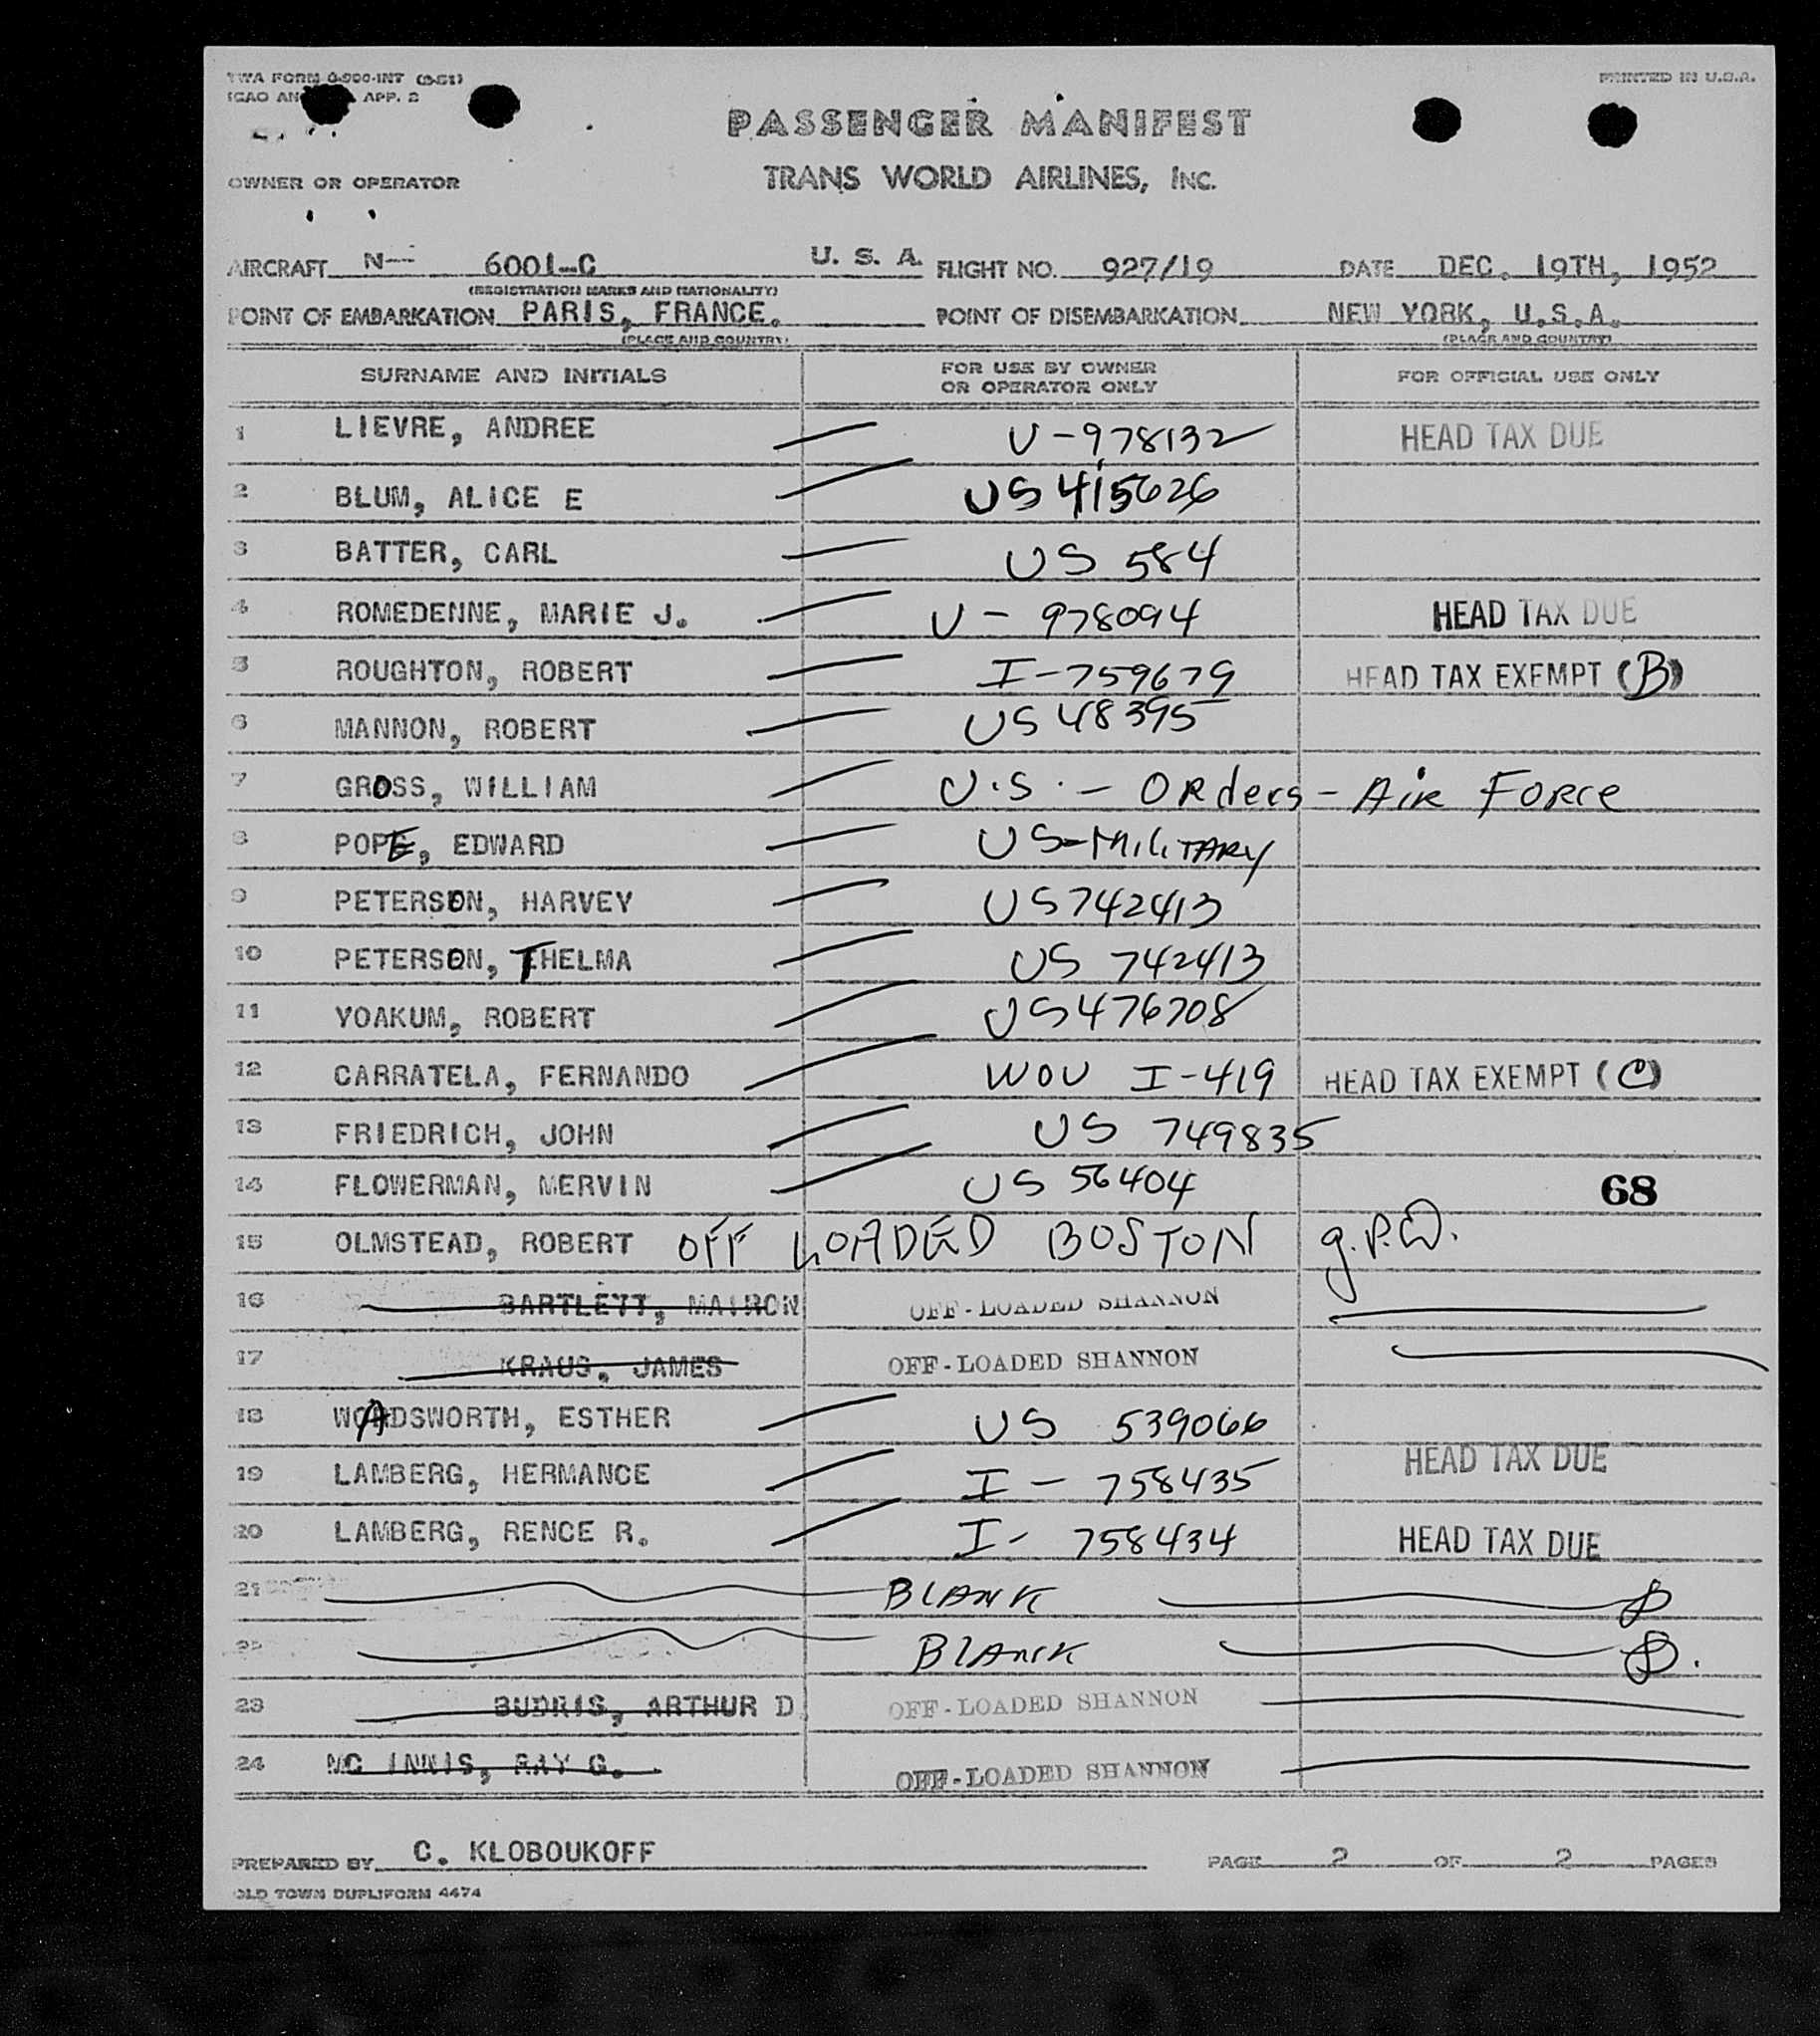 TWA FORM O-900-INT (9-51)
ICAO AN APP. 2
PRINTED IN U.S.A.
PASSENGER MANIFEST
OWNER OR OPERATOR
TRANS WORLD AIRLINES, INC.
AIRCRAFT N-- 6001-C U. S. A. FLIGHT NO. 927/19 DATE DEC. 19TH, 1952
(REGISTRATION MARKS AND NATIONALITY)
POINT OF EMBARKATION PARIS, FRANCE. POINT OF DISEMBARKATION NEW YORK, U.S.A.
(PLACE AND COUNTRY) (PLACE AND COUNTRY)
SURNAME AND INITIALS FOR USE BY OWNER OR OPERATOR ONLY FOR OFFICIAL USE ONLY
1 LIEVRE, ANDREE U-978132 HEAD TAX DUE
2 BLUM, ALICE E US 415626
3 BATTER, CARL US 584
4 ROMEDENNE, MARIE J. U - 978094 HEAD TAX DUE
5 ROUGHTON, ROBERT I-759679 HEAD TAX EXEMPT (B)
6 MANNON, ROBERT US 48395
7 GROSS, WILLIAM U.S. - ORders - AiR FORCe
8 POPE, EDWARD US-MiliTARY
9 PETERSON, HARVEY US742413
10 PETERSON, THELMA US 742413
11 YOAKUM, ROBERT US476708
12 CARRATELA, FERNANDO WOU I-419 HEAD TAX EXEMPT (C)
13 FRIEDRICH, JOHN US 749835
14 FLOWERMAN, MERVIN US 56404 68
15 OLMSTEAD, ROBERT OFF LOADED BOSTON
16 BARTLETT, MAIRON OFF-LOADED SHANNON
17 KRAUS, JAMES OFF-LOADED SHANNON
18 WADSWORTH, ESTHER US 539066
19 LAMBERG, HERMANCE I - 758435 HEAD TAX DUE
20 LAMBERG, RENCE R. I- 758434 HEAD TAX DUE
21 BLANK
22 BLANK
23 BUDRIS, ARTHUR D OFF-LOADED SHANNON
24 MC INNIS, RAY G. OFF-LOADED SHANNON
PREPARED BY C. KLOBOUKOFF PAGE 2 OF 2 PAGES
OLD TOWN DUPLIFORM 4474